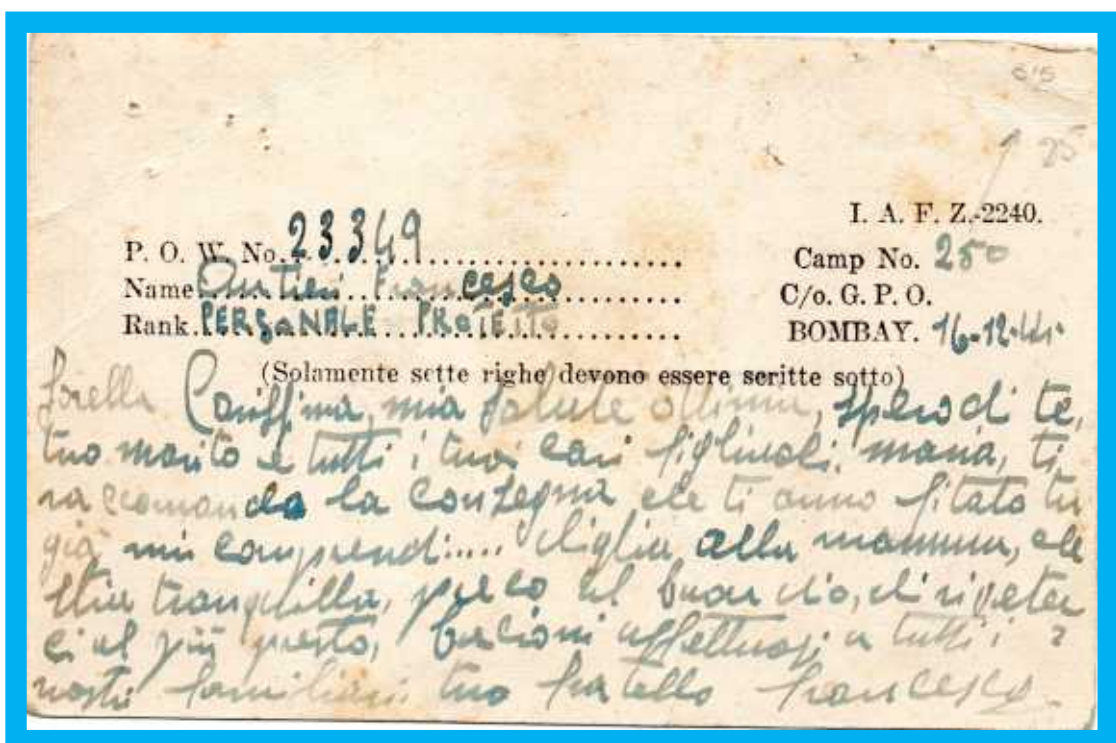 615
25
I. A. F. Z.-2240.
P. O. W. No. 23349
Camp No. 250
Name Autieri Francesco
C/o. G. P. O.
Rank PERSONALE PROTETTO
BOMBAY. 16-12-44.
(Solamente sette righe devono essere scritte sotto)
Sorella Cariſſima, mia salute ottima, spero di te,
tuo marito e tutti i tuoi cari figliuoli. maria, ti
raccomando la consegna che ti anno fitato tu
già mi comprendi.... diglia alla mamma, che
stia tranquilla, preco al buon dio, di riveter
ci al più presto, bacioni affettuosi a tutti i
nosti familiari tuo fratello francesco